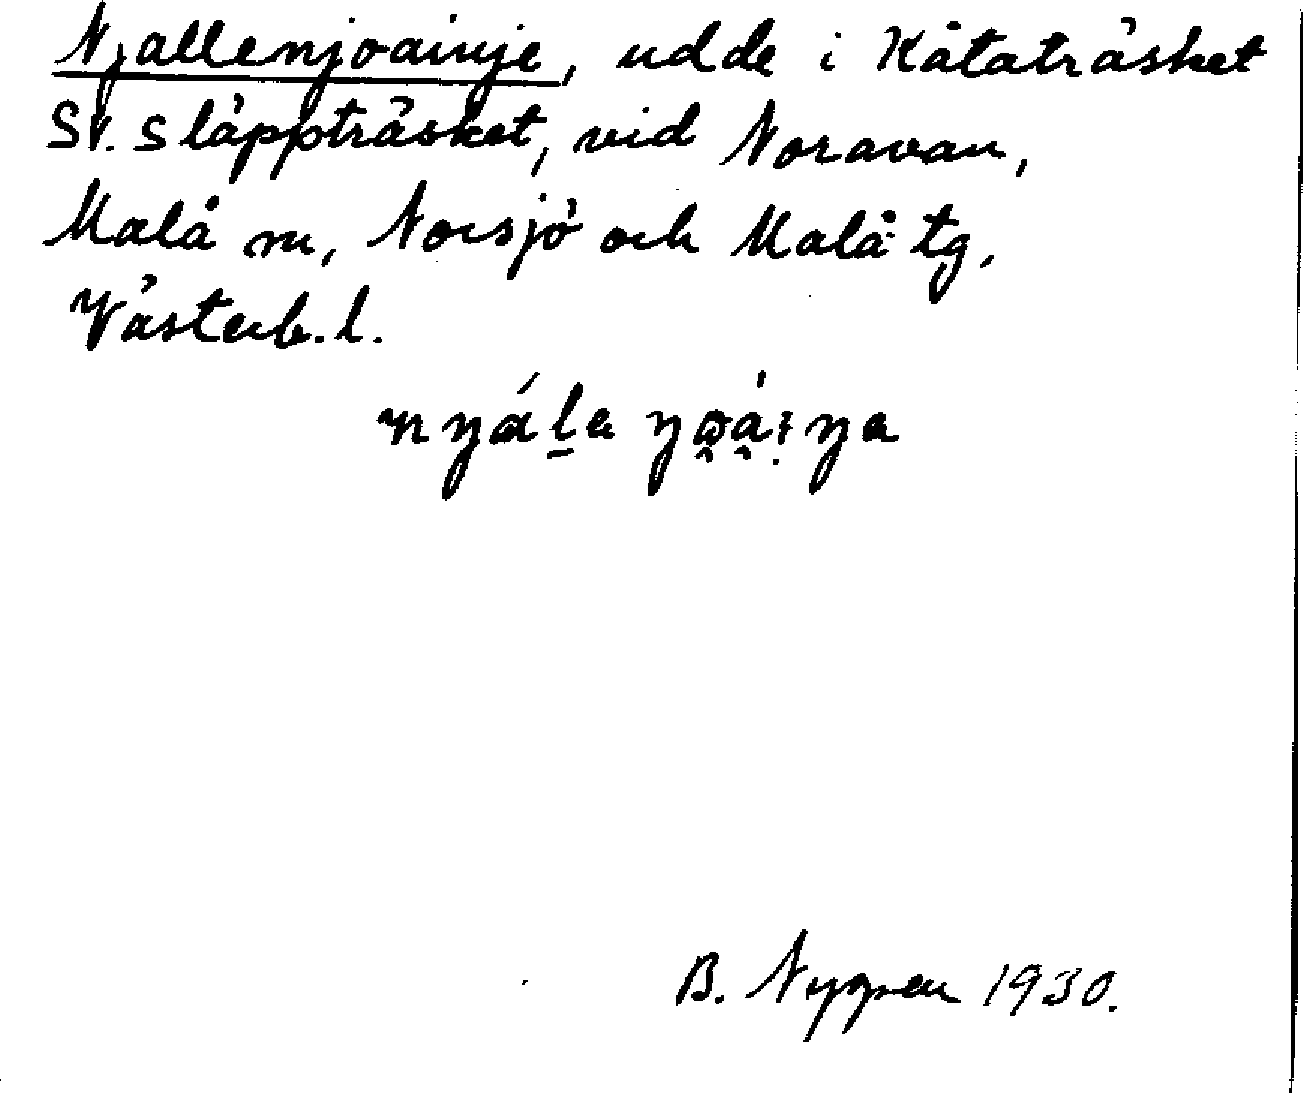 Njallenjoainje, udde i Kåtaträsket
SV. Släppträsket, vid Noravan,
Malå sn, Norsjö och Malå tg,
Västerb. l.
B. Nygren 1930.